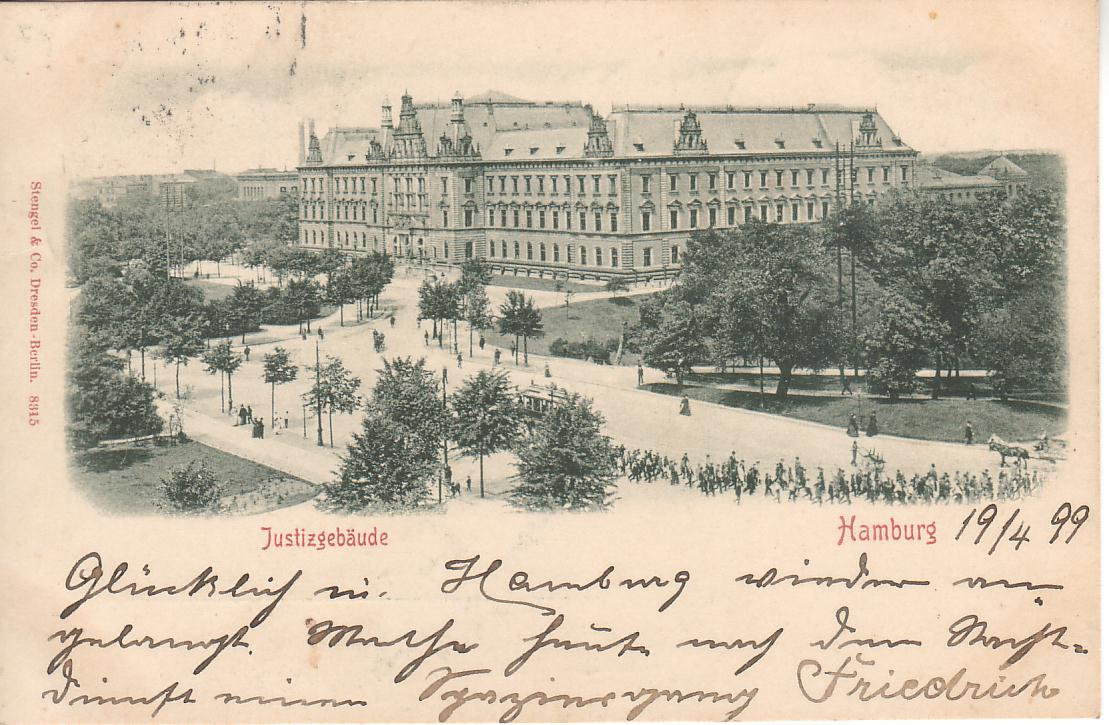 Stengel & Co. Dresden-Berlin. 8315
Justizgebäude
Hamburg 19/4 99
Glücklich in Hamburg wieder an-
gelangt. Mache heute nach dem Nacht-
dienst einen Spaziergang Friedrich